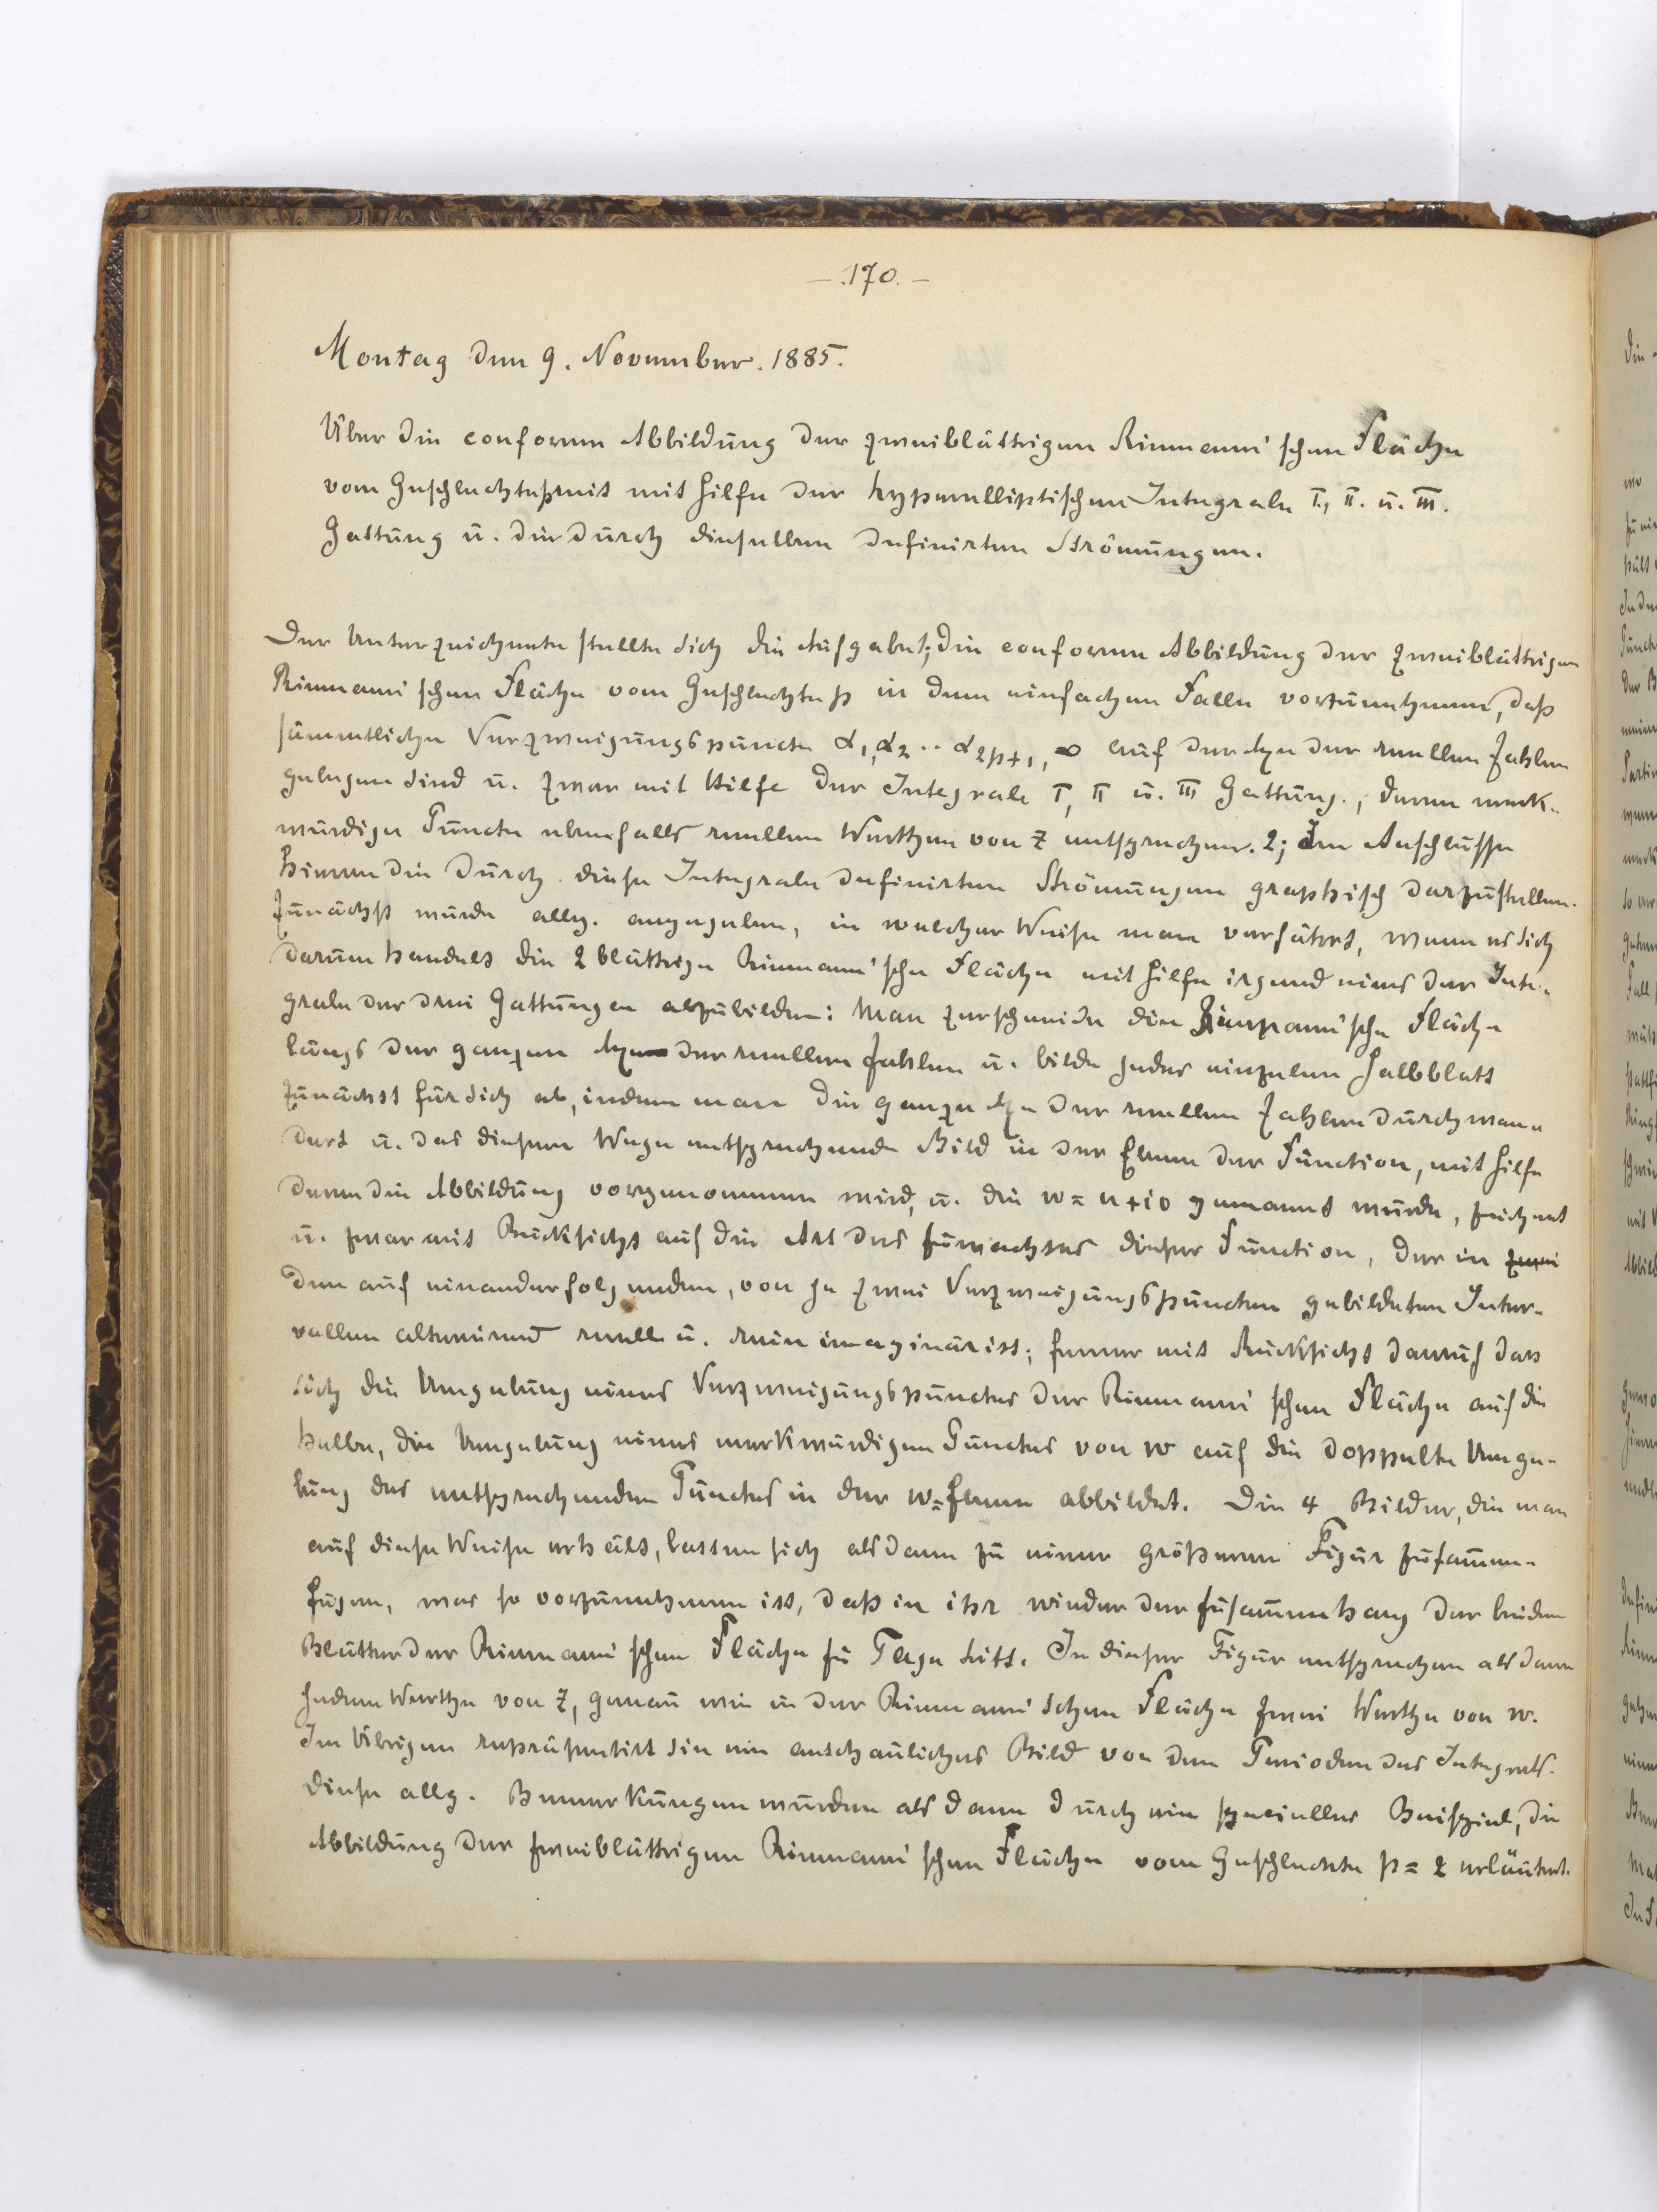 - 170. -
Montag den 9. November. 1885.
Über die conforme Abbildung der zweiblättrigen Riemann'schen Fläche
vom Geschlechte p mit mit Hilfe der hyperelliptischen Integrale I., II. u. III.
Gattung u. die durch dieselben definirten Strömungen.
Der Unterzeichnete stellte sich die Aufgabe 1; die conforme Abbildung der zweiblättrigen
Riemann'schen Fläche vom Geschlechte p in dem einfachen Falle vorzunehmen, daß
sämmtliche Verzweigungspuncte α1, α2 .. α2p+1, ∞ auf der Axe der reellen Zahlen
gelegen sind u. zwar mit Hilfe der Integrale I, II u. III Gattung., deren merk-
würdige Puncte ebenfalls reellen Werthen von z entsprechen. 2; Im Anschlusse
hieran die durch diese Integrale definirten Strömungen graphisch darzustellen.
Zunächst wurde allg. angegeben, in welcher Weise man verfährt, wenn es sich
darum handelt die 2 blättrige Riemann'sche Fläche mit Hilfe irgend eines der Inte-
grale der drei Gattungen abzubilden: Man zerschneide die Riemann'sche Fläche
längs der ganzen Axe der reellen Zahlen u. bilde jedes einzelne Halbblatt
zunächst für sich ab, indem man die ganze Axe der reellen Zahlen durchwan-
dert u. das diesem Wege entsprechende Bild in der Ebene der Function, mit Hilfe
deren die Abbildung vorgenommen wird, u. die w = u + iv genannt wurde, zeichnet
u. zwar mit Rücksicht auf die Art des Zuwachses dieser Function, der in zwei
den auf einanderfolgenden, von je zwei Verzweigungspuncten gebildeten Inter-
vallen alternirend reell u. rein imaginär ist; ferner mit Rücksicht darauf dass
sich die Umgebung eines Verzweigungspunctes der Riemann'schen Fläche auf die
halbe, die Umgebung eines merkwürdigen Punctes von w auf die doppelte Umge-
bung des entsprechenden Punctes in der w=Ebene abbildet. Die 4 Bilder, die man
auf diese Weise erhält, lassen sich alsdann zu einer größeren Figur zusammen-
fügen, was so vorzunehmen ist, daß in ihr wieder der Zusammenhang der beiden
Blätter der Riemann'schen Fläche zu Tage tritt. In dieser Figur entsprechen alsdann
jedem Werthe von z, genau wie in der Riemann'schen Fläche zwei Werthe von w.
Im Übrigen repräsentirt sie ein anschauliches Bild von den Perioden des Integrals.
Diese allg. Bemerkungen wurden alsdann durch ein specielles Beispiel, die
Abbildung der zweiblättrigen Riemann'schen Fläche vom Geschlechte p = 2 erläutert.